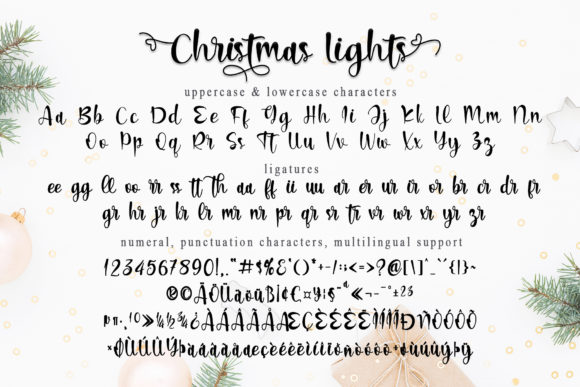 Christmas lights
uppercase & lowercase characters
Aa Bb Cc Dd Ee Ff Gg Hh Ii Jj Kk Ll Mm Nn
Oo Pp Qq Rr Ss Tt Uu Vv Ww Xx Yy Zz
ligatures
ee gg ll oo rr ss tt th aa ff ii uu ar er ur ir or br cr dr fr
gr hr jr kr lr mr nr pr qr rr sr tr vr wr xr yr zr
numeral, punctuation characters, multilingual support
1234567890!,."#$%&'()*+-/:;<=>?@[\]^_`{|}~
ÀÁÂÃÄÅÆÇÈÉÊËÌÍÎÏÐÑÒÓÔÕ